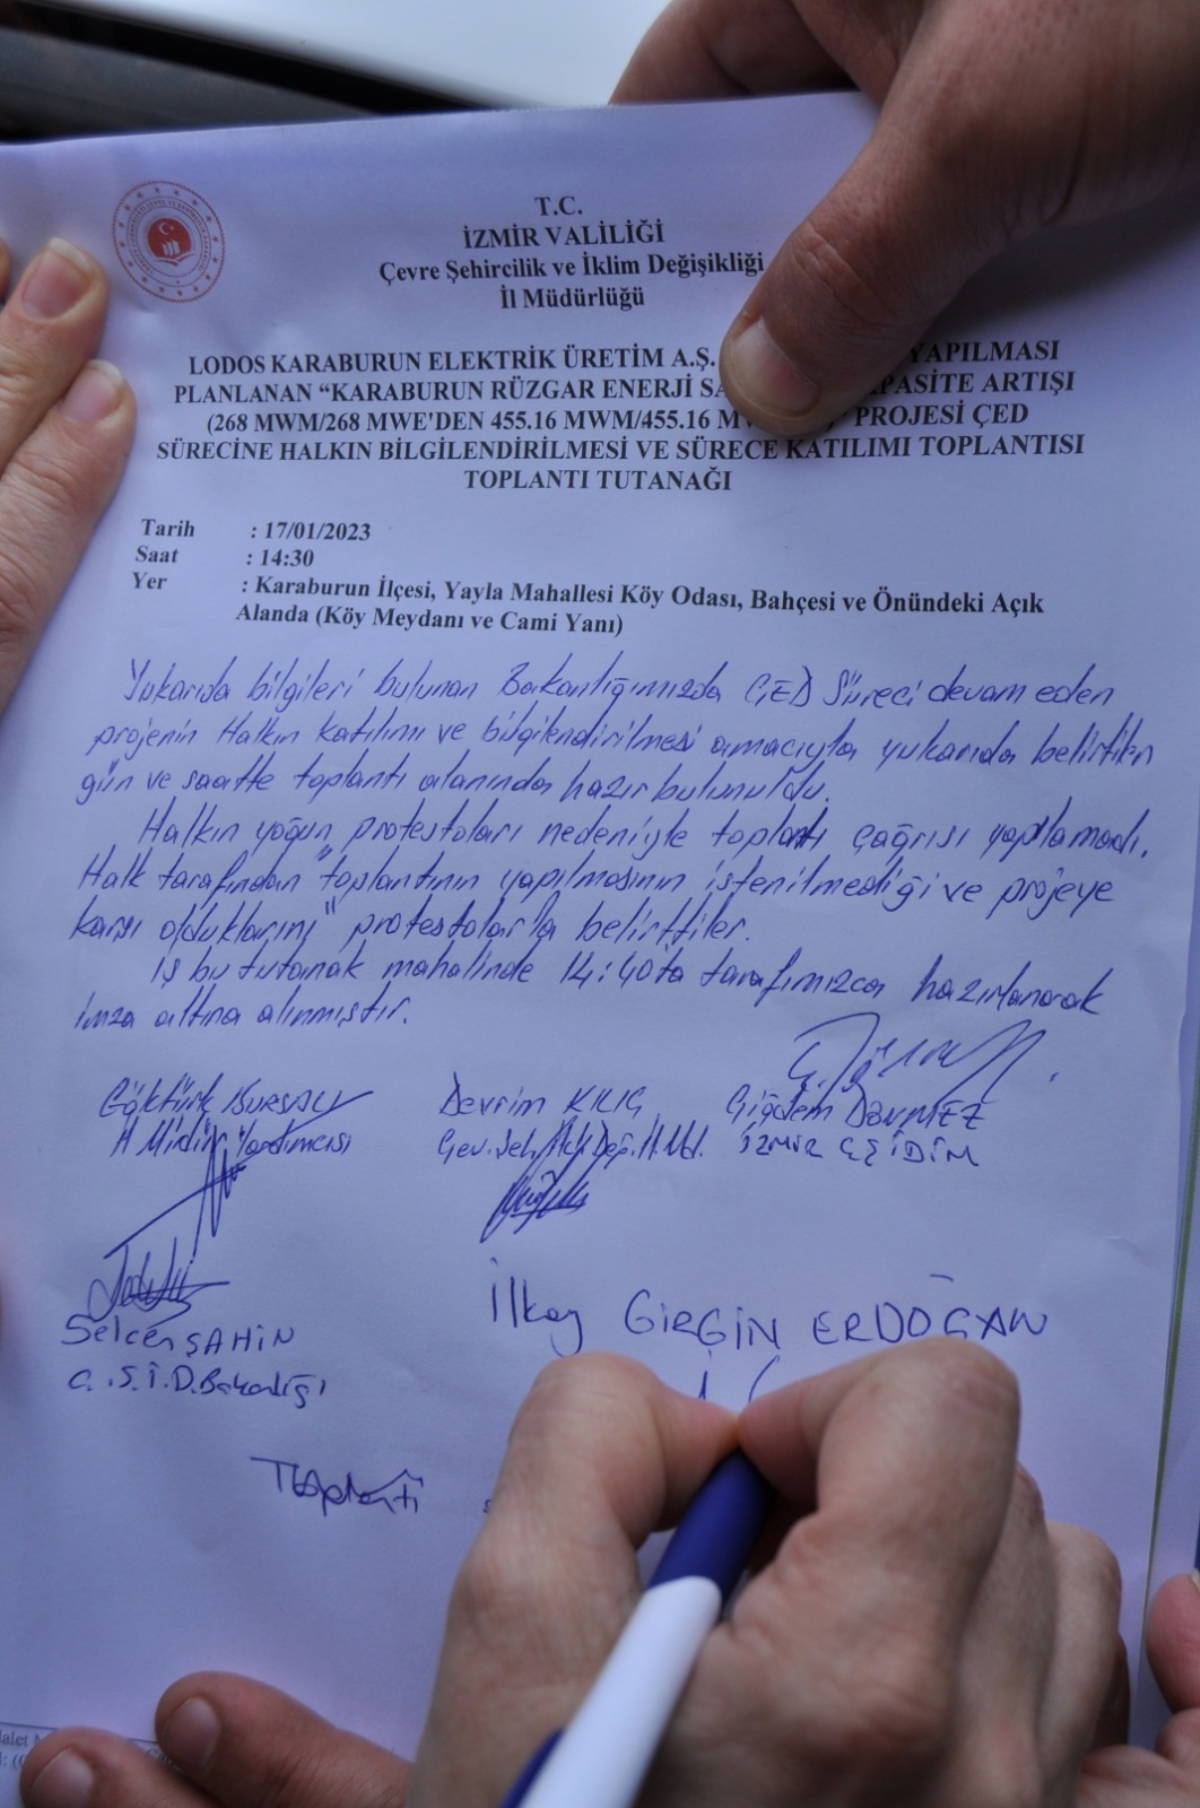 T.C.
İZMİR VALİLİĞİ
Çevre Şehircilik ve İklim Değişikliği
İl Müdürlüğü
LODOS KARABURUN ELEKTRİK ÜRETİM A.Ş. YAPILMASI
PLANLANAN “KARABURUN RÜZGAR ENERJİ SA APASİTE ARTIŞI
(268 MWM/268 MWE'DEN 455.16 MWM/455.16 MW )” PROJESİ ÇED
SÜRECİNE HALKIN BİLGİLENDİRİLMESİ VE SÜRECE KATILIMI TOPLANTISI
TOPLANTI TUTANAĞI
Tarih : 17/01/2023
Saat : 14:30
Yer : Karaburun İlçesi, Yayla Mahallesi Köy Odası, Bahçesi ve Önündeki Açık
Alanda (Köy Meydanı ve Cami Yanı)
Yukarıda bilgileri bulunan Bakanlığımızda ÇED Süreci devam eden
projenin Halkın katılımı ve bilgilendirilmesi amacıyla yukarıda belirtilen
gün ve saatte toplantı alanında hazır bulunuldu.
Halkın yoğun protestoları nedeniyle toplantı çağrısı yapılamadı.
Halk tarafından "toplantının yapılmasının istenilmediği ve projeye
karşı olduklarını" protestolarla belirttiler.
İş bu tutanak mahalinde 14:40'ta tarafımızca hazırlanarak
imza altına alınmıştır.
Göktürk BURSALI Devrim KILIÇ Çiğdem DÖNMEZ
İl Müdür Yardımcısı Çev. Şeh. İkl. Değ. İl Md. İZMİR ÇŞİDİM
İlkay GİRGİN ERDOĞAN
Selcen ŞAHİN
Ç.Ş.İ.D.Bakanlığı
Toplantı